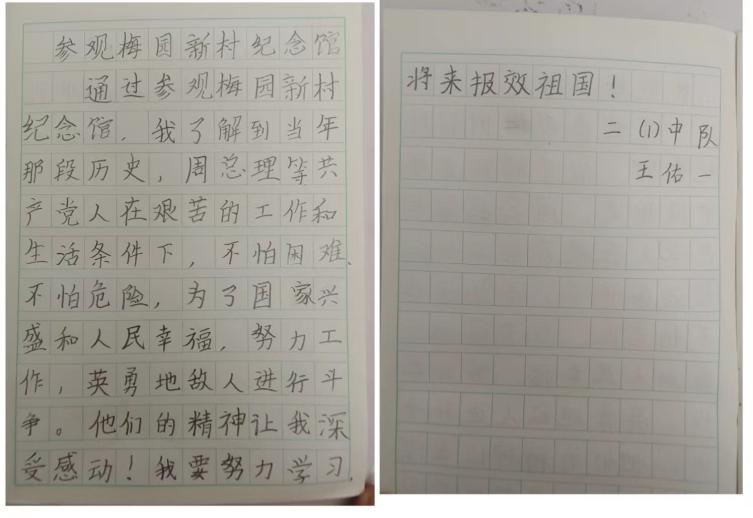 参观梅园新村纪念馆
通过参观梅园新村
纪念馆，我了解到当年
那段历史，周总理等共
产党人在艰苦的工作和
生活条件下，不怕困难、
不怕危险，为了国家兴
盛和人民幸福，努力工
作，英勇地敌人进行斗
争。他们的精神让我深
受感动！我要努力学习，
将来报效祖国！
二(1)中队
王佑一